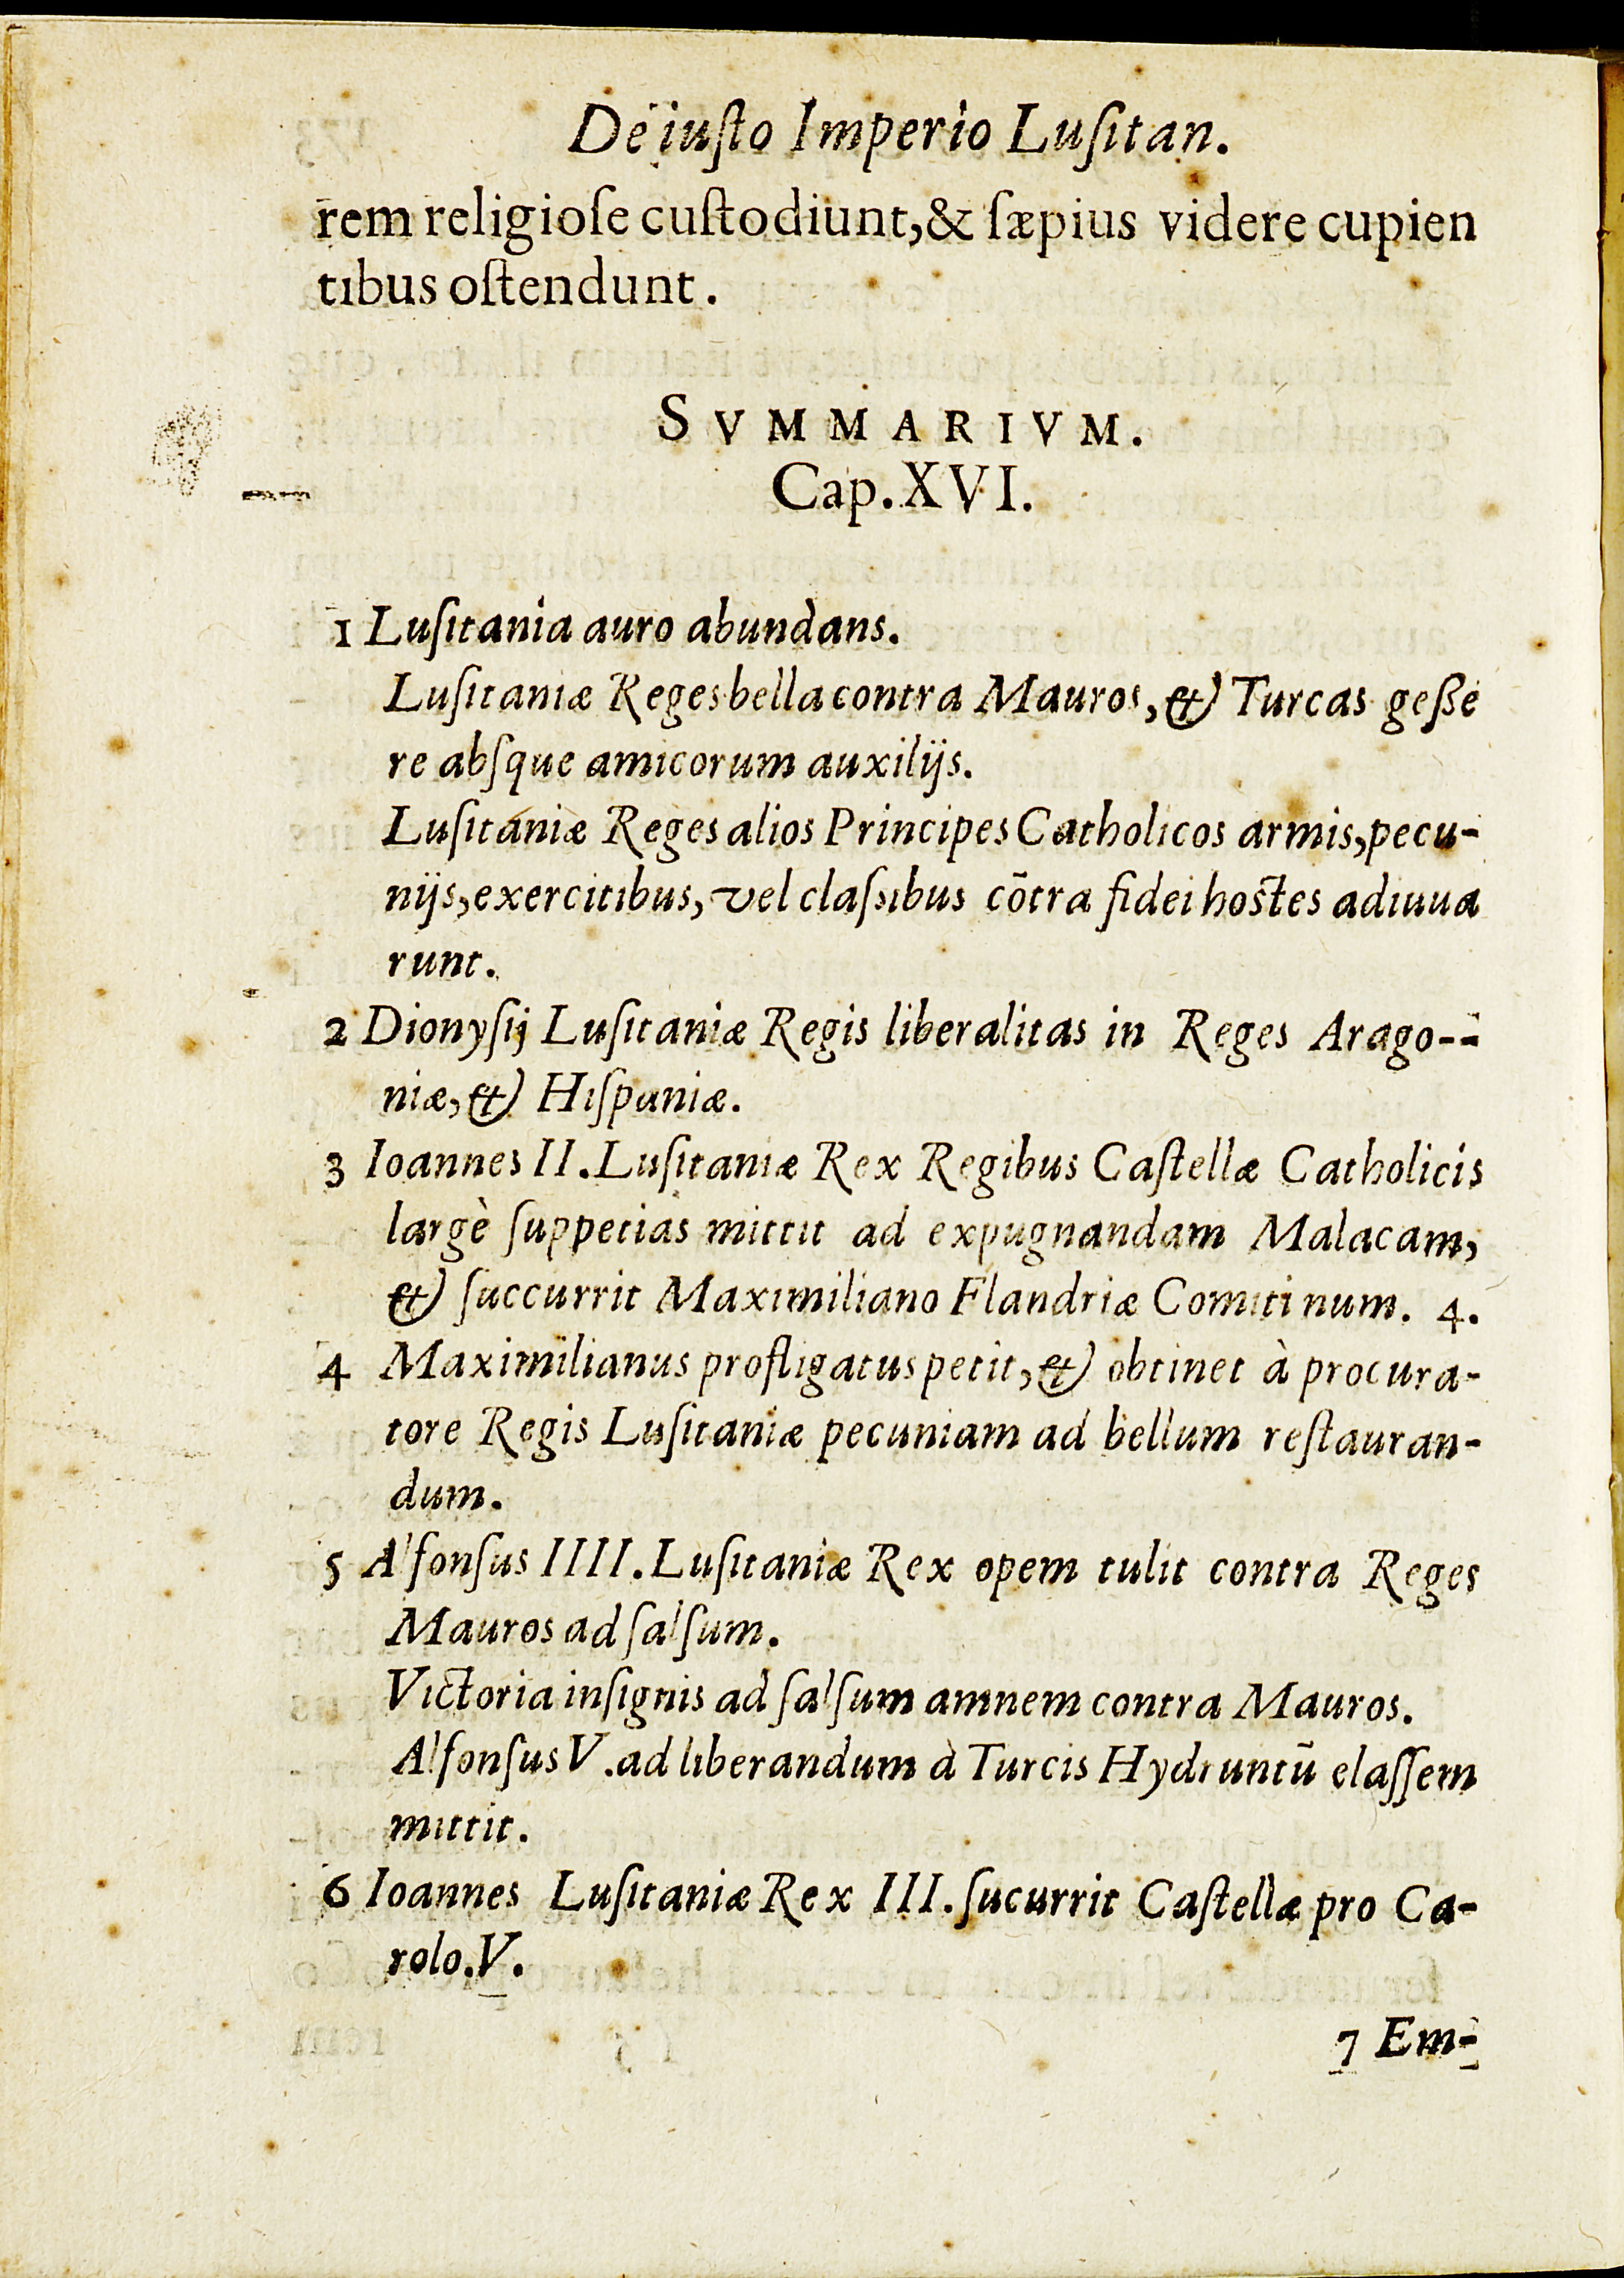 De iuſto Imperio Luſitan.
rem religioſe cuſtodiunt,& ſæpius videre cupien
tibus oſtendunt.
SVMMARIVM.
Cap.XVI.
1 Luſitania auro abundans.
Luſitaniæ Reges bella contra Mauros, & Turcas geße
re abſque amicorum auxilijs.
Luſitaniæ Reges alios Principes Catholicos armis,pecu-
nijs,exercitibus, vel claſsibus cõtra fidei hoſtes adiuua
runt.
2 Dionyſij Luſitaniæ Regis liberalitas in Reges Arago--
niæ, & Hiſpaniæ.
3 Ioannes II.Luſitaniæ Rex Regibus Caſtellæ Catholicis
largè ſuppetias mittit ad expugnandam Malacam,
& ſuccurrit Maximiliano Flandriæ Comiti num. 4.
4 Maximilianus profligatus petit, & obtinet à procura-
tore Regis Luſitaniæ pecuniam ad bellum reſtauran-
dum.
5 Alfonſus IIII.Luſitaniæ Rex opem tulit contra Reges
Mauros ad ſalſum.
Victoria inſignis ad ſalſum amnem contra Mauros.
Alfonſus V.ad liberandum à Turcis Hydruntũ elaſſem
mittit.
6 Ioannes Luſitaniæ Rex III.ſucurrit Caſtellæ pro Ca-
rolo.V.
7 Em-